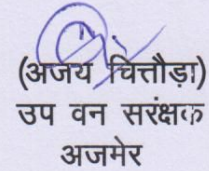 (अजय चित्तौड़ा)
उप वन सरंक्षक
अजमेर